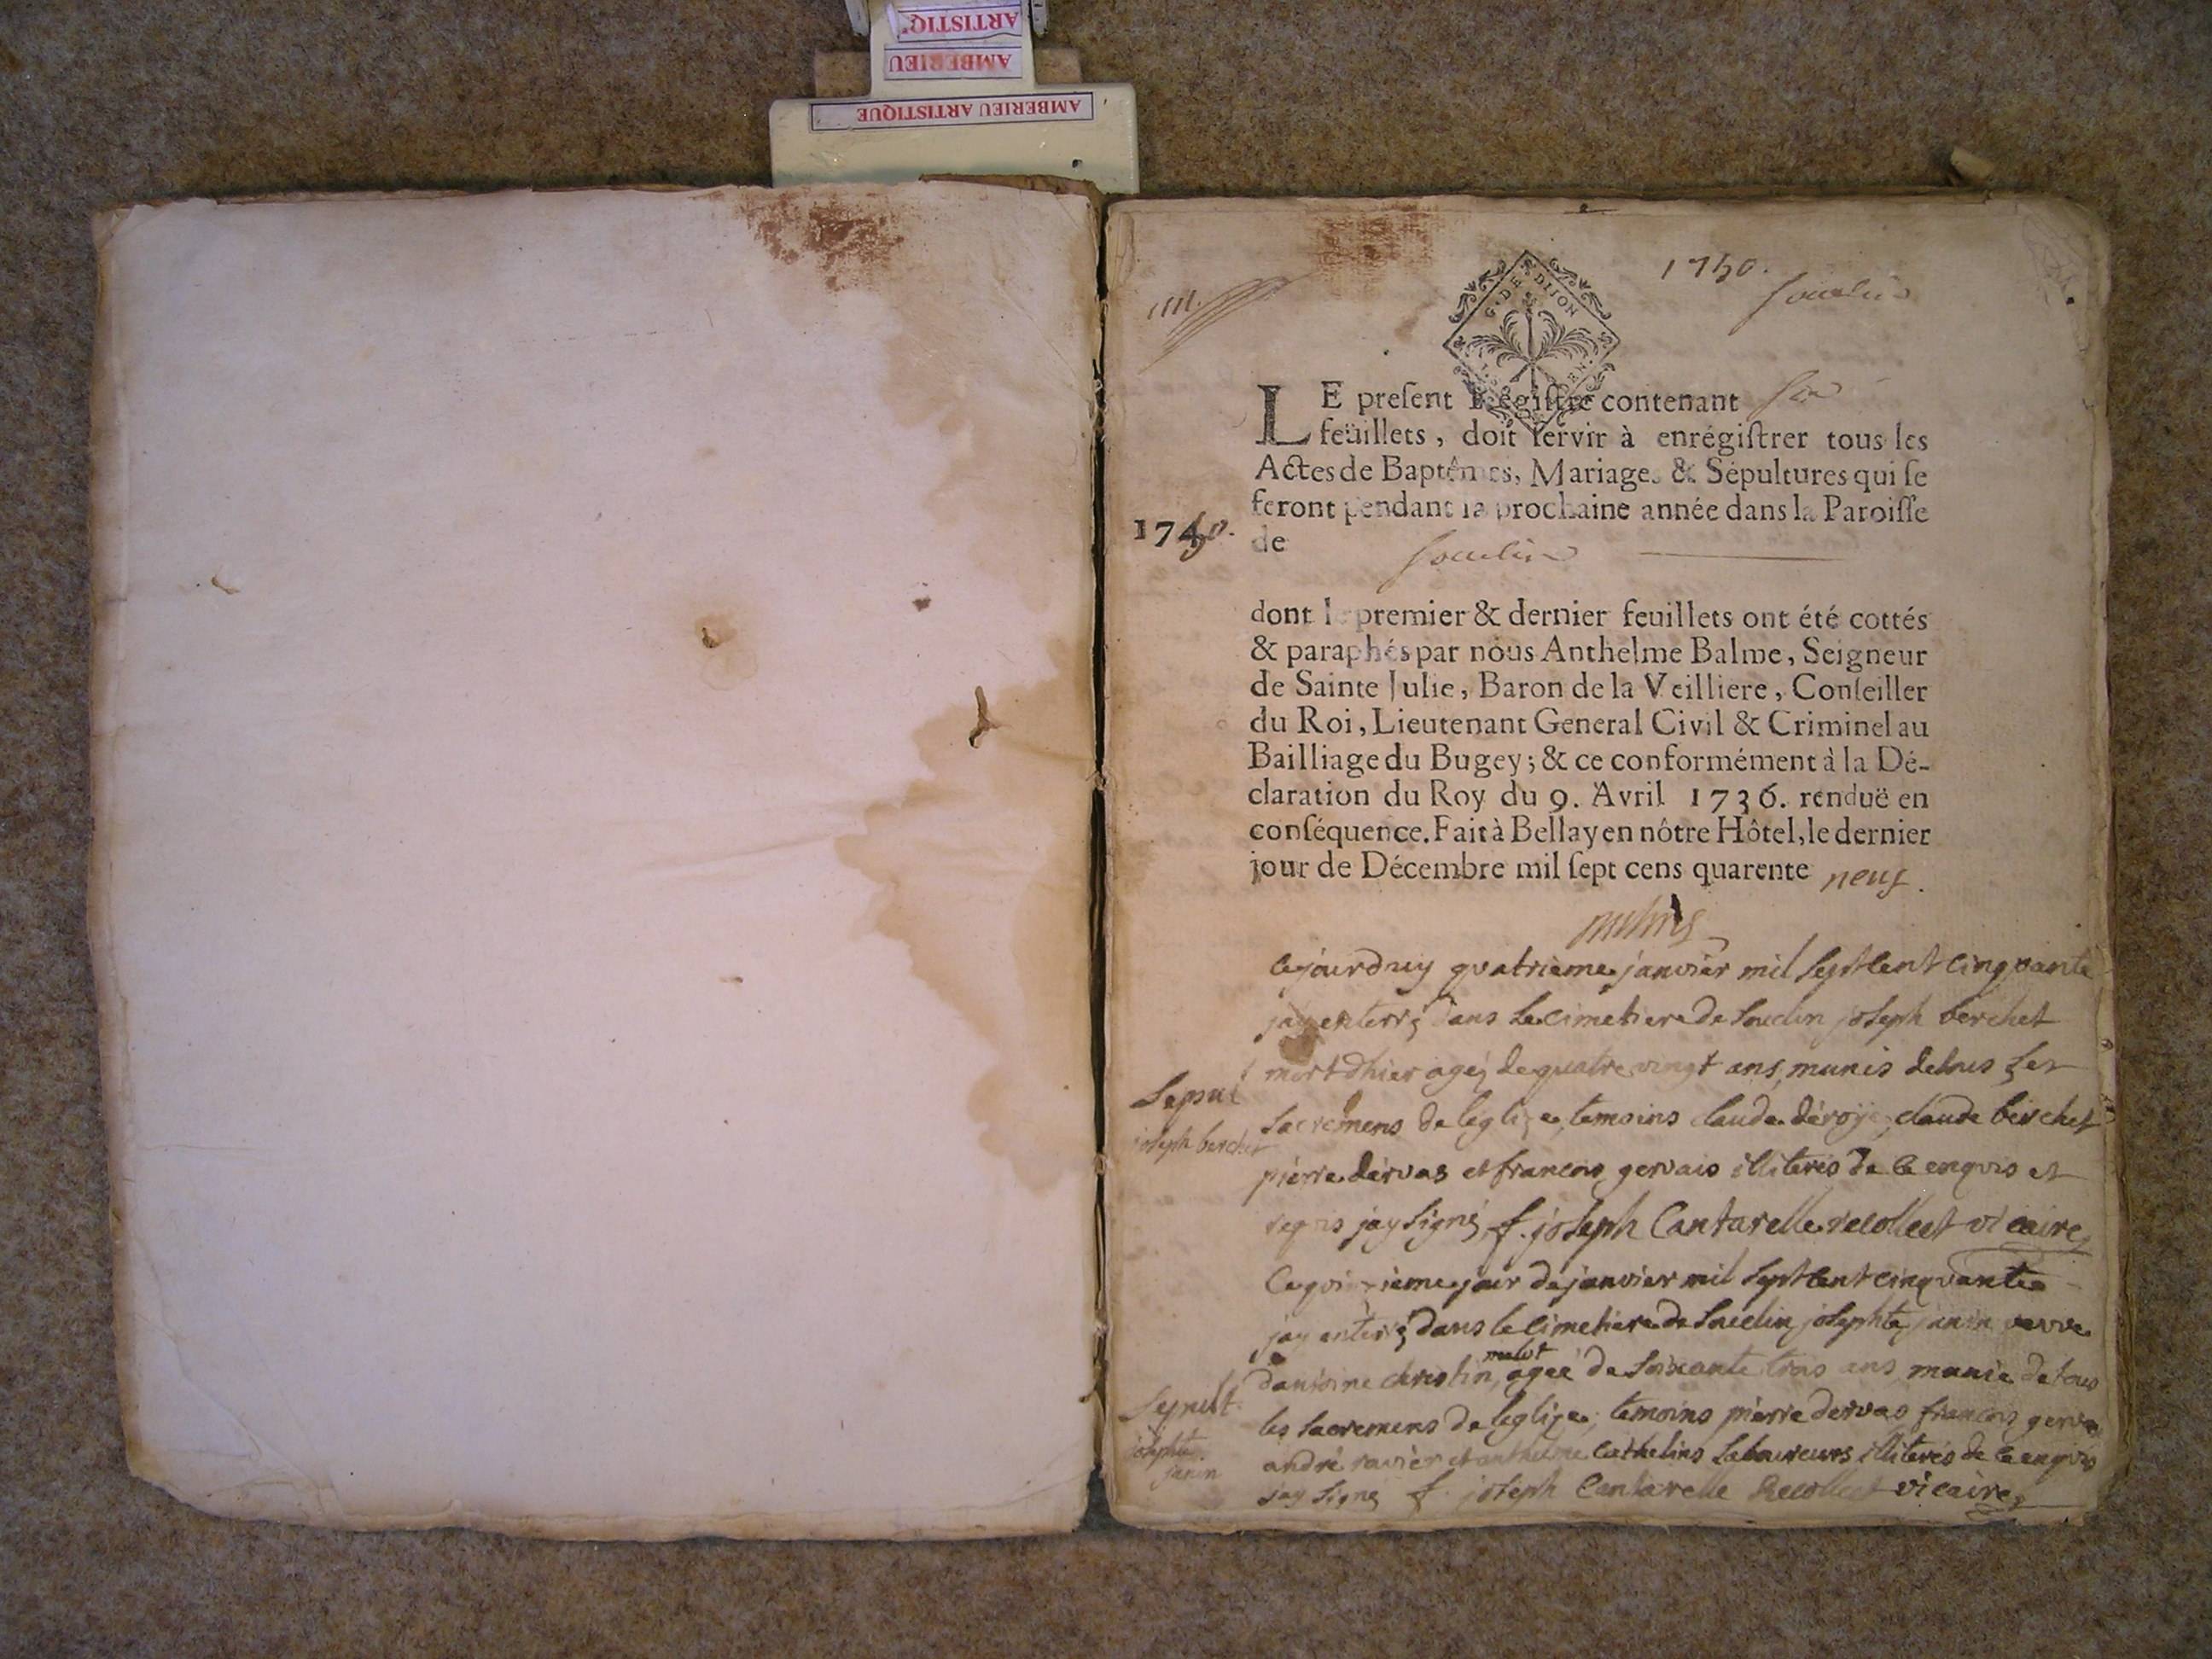 ARTISTIQ
AMBERIEU
AMBERIEU ARTISTIQUE
1750.
Souclin
G. DE DIJON
LE present Régistre contenant six
feüillets, doit servir à enrégistrer tous les
Actes de Baptêmes, Mariages & Sépultures qui se
feront pendant la prochaine année dans la Paroisse
1750.
de Souclin
dont le premier & dernier feuillets ont été cottés
& paraphés par nous Anthelme Balme, Seigneur
de Sainte Julie, Baron de la Veilliere, Conseiller
du Roi, Lieutenant General Civil & Criminel au
Bailliage du Bugey; & ce conformément à la Dé-
claration du Roy du 9. Avril 1736. renduë en
conséquence. Fait à Bellay en nôtre Hôtel, le dernier
jour de Décembre mil sept cens quarente neuf.
cejourduy quatrieme janvier mil sept cent cinquante
jay enterré dans le cimetiere de Souclin joseph berchet
mort dhier agé de quatre vingt ans, munis de tous les
Sepul
joseph berchet
sacremens de leglize, temoins claude déroye, claude berchet
pierre dervas et francois gervais illiterés de ce enquis et
requis jay signé f. joseph Cantarelle recollect vicaire
Ce quinzieme jour de janvier mil sept cent cinquante
jay enterré dans le cimetiere de Souclin josephte janin vevve
dantoine chrestin, agée de soixante trois ans munie de tous
Sepult.
josephte
janin
les sacremens de leglize, temoins pierre dervas francois gerva
andré ravier et anthelme Cathelins laboureurs illiterés de ce enquis
jay signé f. joseph Cantarelle Recollect vicaire